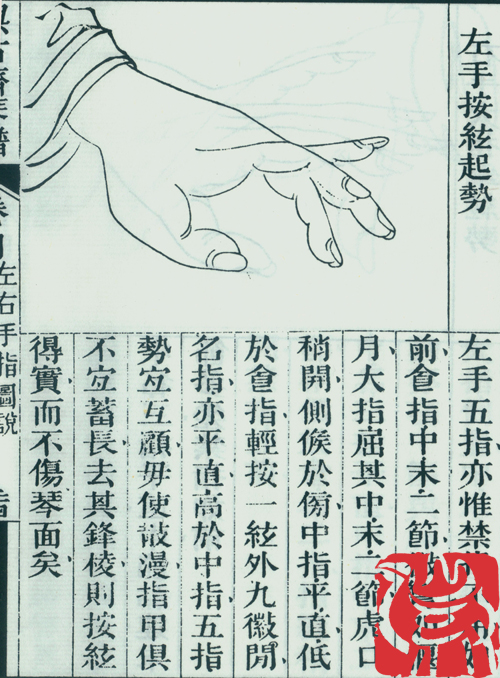 左手按絃起勢
左手五指亦惟禁
前食指中末二節
月大指屈其中末二節虎口
稍開側俟於傍中指平直低
於食指輕按一絃外九徽間
名指亦平直高於中指五指
勢宜互顧毋使散漫指甲俱
不宜蓄長去其鋒稜則按絃
得實而不傷琴面矣
左右手指圖說